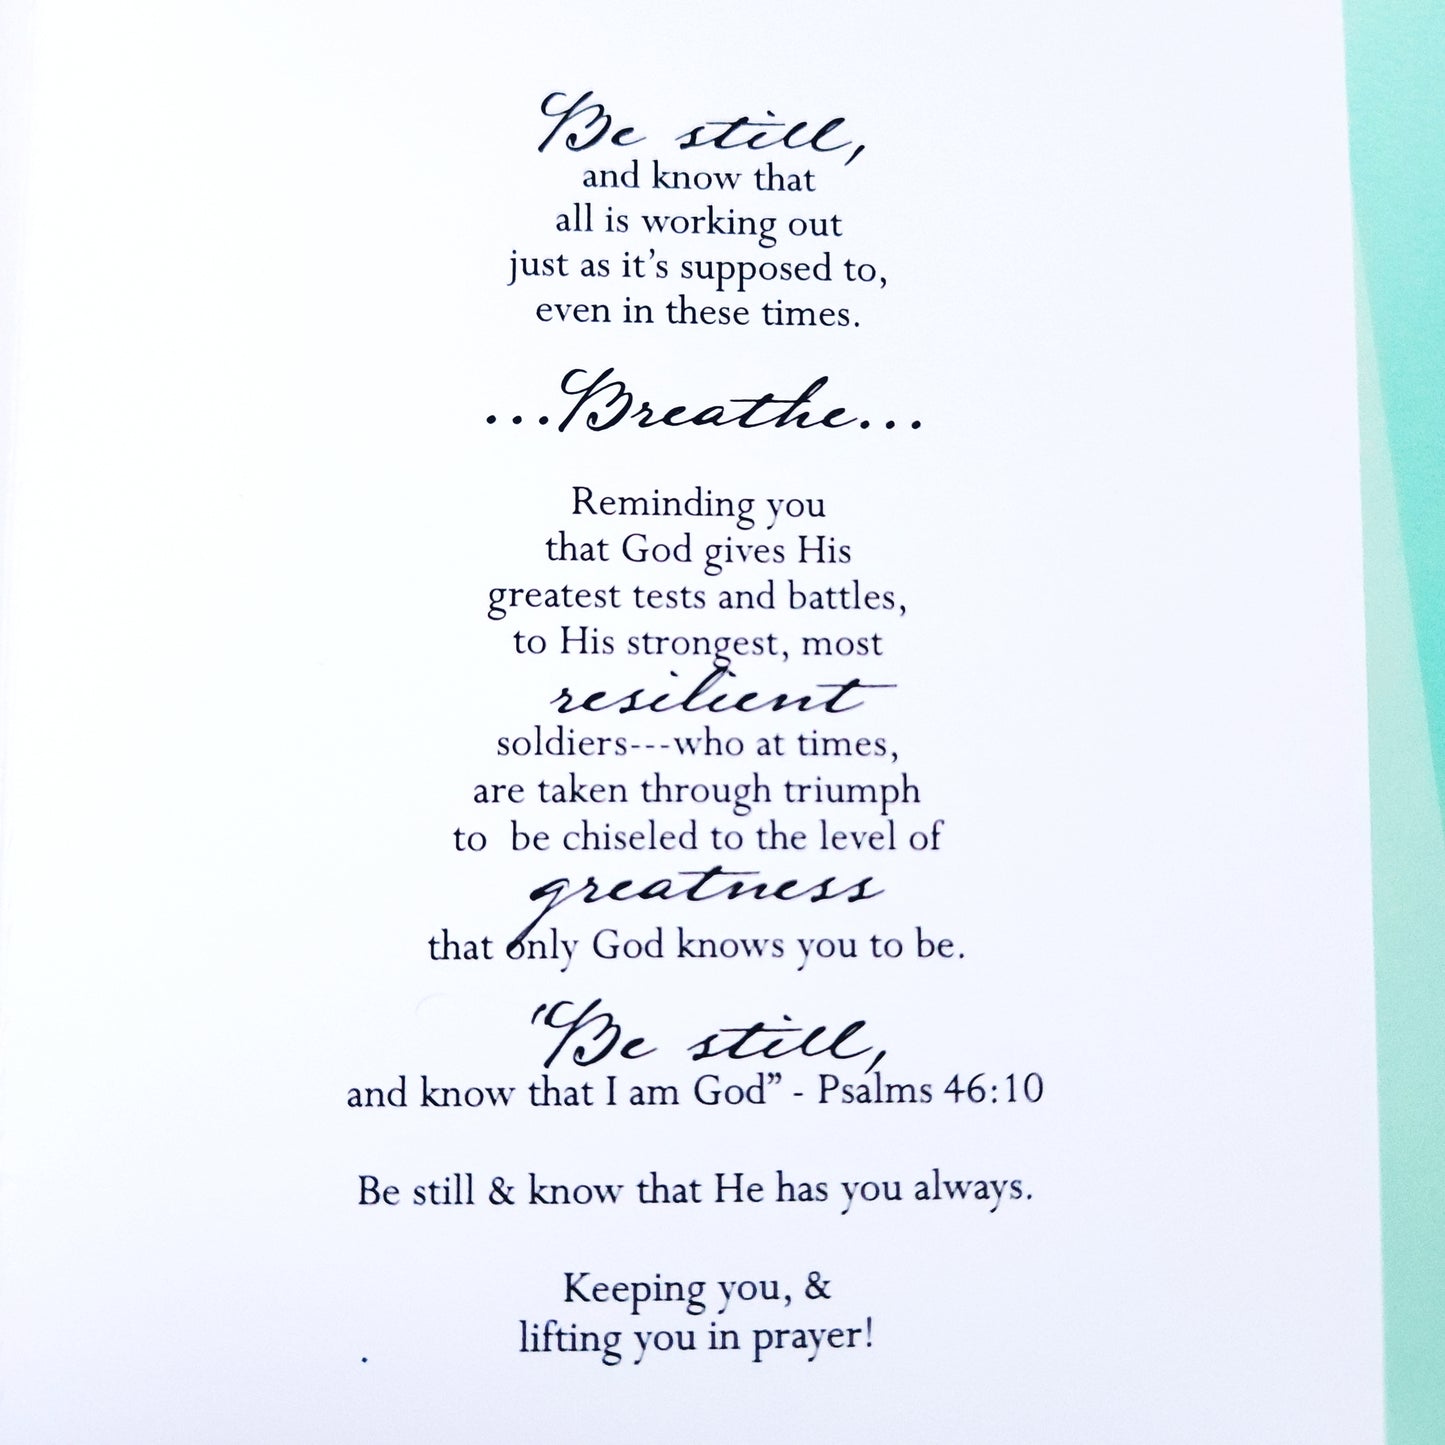 Be still,
and know that
all is working out
just as it’s supposed to,
even in these times.
...Breathe...
Reminding you
that God gives His
greatest tests and battles,
to His strongest, most
resilient
soldiers---who at times,
are taken through triumph
to  be chiseled to the level of
greatness
that only God knows you to be.
"Be still,
and know that I am God” - Psalms 46:10
Be still & know that He has you always.
Keeping you, &
lifting you in prayer!